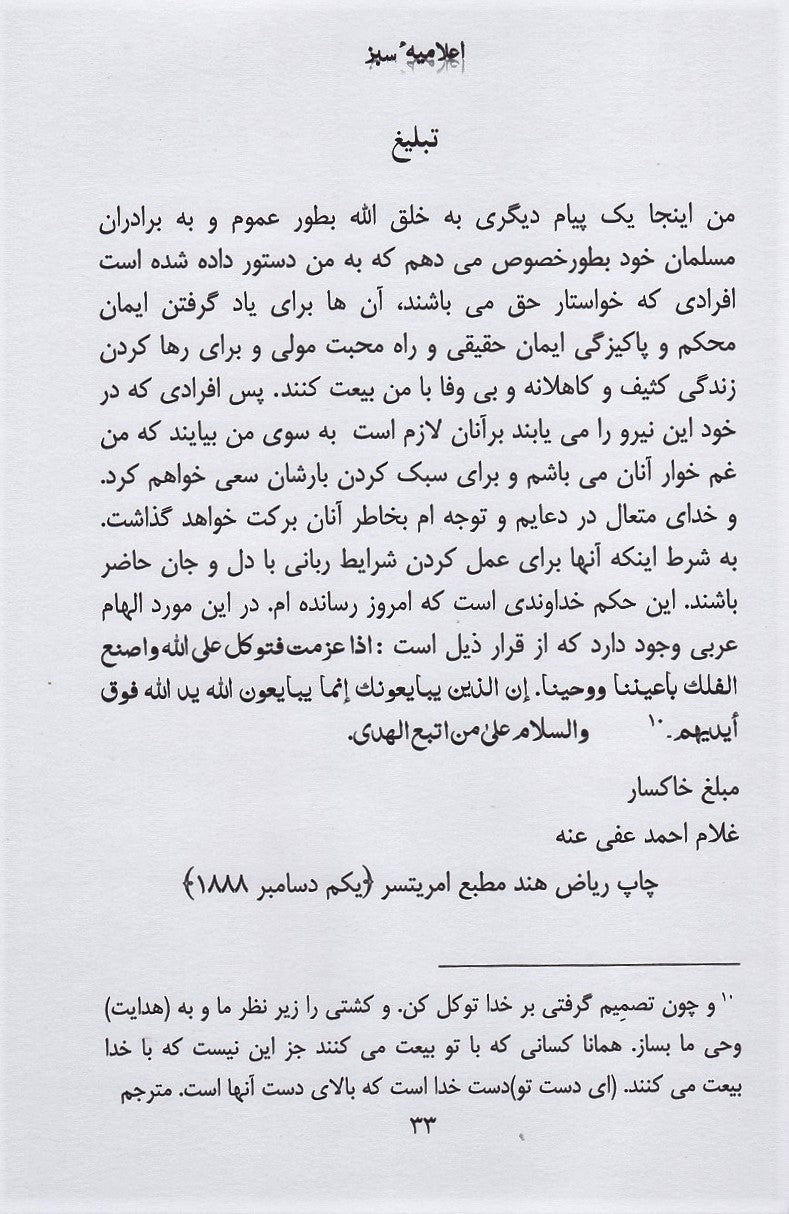 اعلامیهٔ سبز
تبلیغ
من اینجا یک پیام دیگری به خلق الله بطور عموم و به برادران
مسلمان خود بطورخصوص می دهم که به من دستور داده شده است
افرادی که خواستار حق می باشند، آن ها برای یاد گرفتن ایمان
محکم و پاکیزگی ایمان حقیقی و راه محبت مولی و برای رها کردن
زندگی کثیف و کاهلانه و بی وفا با من بیعت کنند. پس افرادی که در
خود این نیرو را می یابند برآنان لازم است به سوی من بیایند که من
غم خوار آنان می باشم و برای سبک کردن بارشان سعی خواهم کرد.
و خدای متعال در دعایم و توجه ام بخاطر آنان برکت خواهد گذاشت.
به شرط اینکه آنها برای عمل کردن شرایط ربانی با دل و جان حاضر
باشند. این حکم خداوندی است که امروز رسانده ام. در این مورد الهام
عربی وجود دارد که از قرار ذیل است : اذا عزمت فتوكل على الله واصنع
الفلك بأعيننا ووحينا. إن الذين يبايعونك إنما يبايعون الله يد الله فوق
أيديهم۔ ۱۰ والسلام علیٰ من اتبع الهدى.
مبلغ خاکسار
غلام احمد عفی عنه
چاپ ریاض هند مطبع امریتسر ﴿یکم دسامبر ۱۸۸۸﴾
۱۰ و چون تصمیم گرفتی بر خدا توکل کن. و کشتی را زیر نظر ما و به (هدایت)
وحی ما بساز. همانا کسانی که با تو بیعت می کنند جز این نیست که با خدا
بیعت می کنند. (ای دست تو)دست خدا است که بالای دست آنها است. مترجم
۳۳